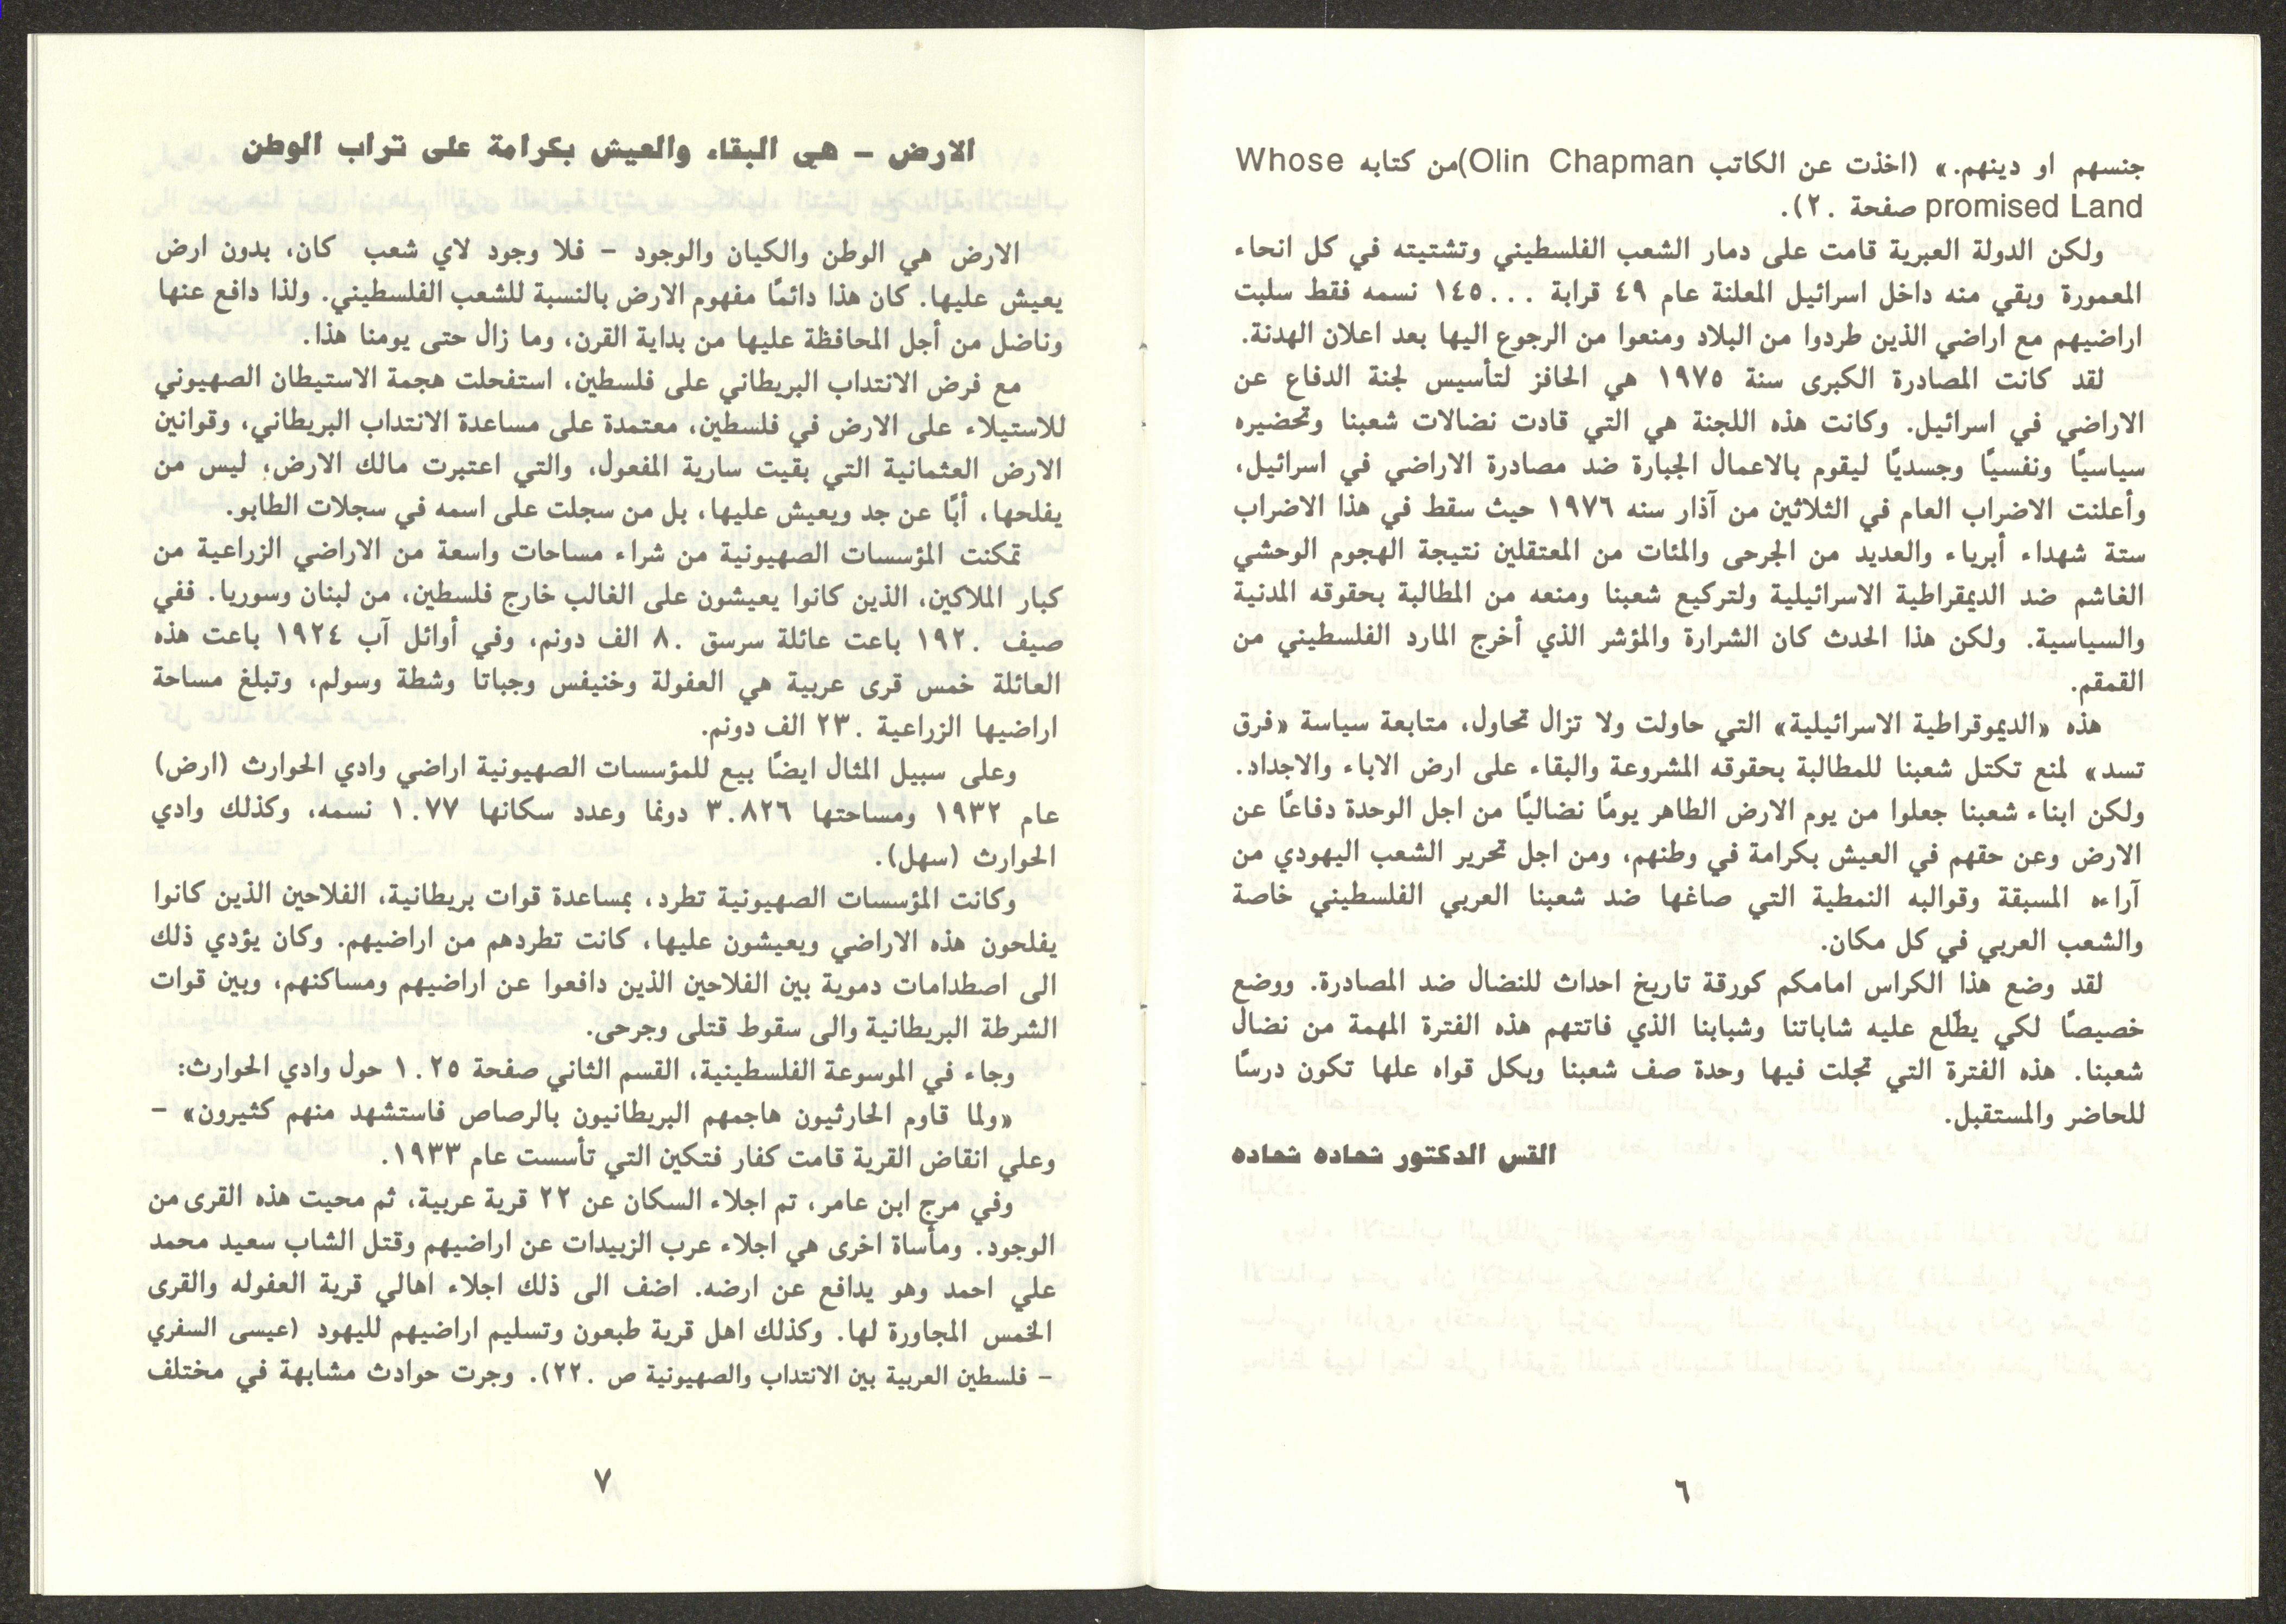 جنسهم او دينهم.» (اخذت عن الكاتب Olin Chapman)من كتابه Whose
promised Land صفحة ٢٠).
ولكن الدولة العبرية قامت على دمار الشعب الفلسطيني وتشتيته في كل انحاء
المعمورة وبقي منه داخل اسرائيل المعلنة عام ٤٩ قرابة ١٤٥٠٠٠ نسمه فقط سلبت
اراضيهم مع اراضي الذين طردوا من البلاد ومنعوا من الرجوع اليها بعد اعلان الهدنة.
لقد كانت المصادرة الكبرى سنة ١٩٧٥ هي الحافز لتأسيس لجنة الدفاع عن
الاراضي في اسرائيل. وكانت هذه اللجنة هي التي قادت نضالات شعبنا وتحضيره
سياسيًا ونفسيًا وجسديًا ليقوم بالاعمال الجبارة ضد مصادرة الاراضي في اسرائيل،
وأعلنت الاضراب العام في الثلاثين من آذار سنه ١٩٧٦ حيث سقط في هذا الاضراب
ستة شهداء أبرياء والعديد من الجرحى والمئات من المعتقلين نتيجة الهجوم الوحشي
الغاشم ضد الديمقراطية الاسرائيلية ولتركيع شعبنا ومنعه من المطالبة بحقوقه المدنية
والسياسية. ولكن هذا الحدث كان الشرارة والمؤشر الذي أخرج المارد الفلسطيني من
القمقم.
هذه «الديموقراطية الاسرائيلية» التي حاولت ولا تزال تحاول، متابعة سياسة «فرق
تسد» لمنع تكتل شعبنا للمطالبة بحقوقه المشروعة والبقاء على ارض الاباء والاجداد.
ولكن ابناء شعبنا جعلوا من يوم الارض الطاهر يومًا نضاليًا من اجل الوحدة دفاعًا عن
الارض وعن حقهم في العيش بكرامة في وطنهم، ومن اجل تحرير الشعب اليهودي من
آراءه المسبقة وقوالبه النمطية التي صاغها ضد شعبنا العربي الفلسطيني خاصة
والشعب العربي في كل مكان.
لقد وضع هذا الكراس امامكم كورقة تاريخ احداث للنضال ضد المصادرة. ووضع
خصيصًا لكي يطّلع عليه شاباتنا وشبابنا الذي فاتتهم هذه الفترة المهمة من نضال
شعبنا. هذه الفترة التي تجلت فيها وحدة صف شعبنا وبكل قواه علها تكون درسًا
للحاضر والمستقبل.
القس الدكتور شحاده شحاده
٦
الارض – هي البقاء والعيش بكرامة على تراب الوطن
الارض هي الوطن والكيان والوجود – فلا وجود لاي شعب كان، بدون ارض
يعيش عليها. كان هذا دائمًا مفهوم الارض بالنسبة للشعب الفلسطيني. ولذا دافع عنها
وناضل من أجل المحافظة عليها من بداية القرن، وما زال حتى يومنا هذا.
مع فرض الانتداب البريطاني على فلسطين، استفحلت هجمة الاستيطان الصهيوني
للاستيلاء على الارض في فلسطين، معتمدة على مساعدة الانتداب البريطاني، وقوانين
الارض العثمانية التي بقيت سارية المفعول، والتي اعتبرت مالك الارض؛ ليس من
يفلحها، أبًا عن جد ويعيش عليها، بل من سجلت على اسمه في سجلات الطابو.
تمكنت المؤسسات الصهيونية من شراء مساحات واسعة من الاراضي الزراعية من
كبار الملاكين، الذين كانوا يعيشون على الغالب خارج فلسطين، من لبنان وسوريا. ففي
صيف ١٩٢٠ باعت عائلة سرسق ٨٠ الف دونم، وفي أوائل آب ١٩٢٤ باعت هذه
العائلة خمس قرى عربية هي العفولة وخنيفس وجباتا وشطة وسولم، وتبلغ مساحة
اراضيها الزراعية ٢٣٠ الف دونم.
وعلى سبيل المثال ايضًا بيع للمؤسسات الصهيونية اراضي وادي الحوارث (ارض)
عام ١٩٣٢ ومساحتها ٣٠٨٢٦ دونما وعدد سكانها ١٠٧٧ نسمه، وكذلك وادي
الحوارث (سهل).
وكانت المؤسسات الصهيونية تطرد، بمساعدة قوات بريطانية، الفلاحين الذين كانوا
يفلحون هذه الاراضي ويعيشون عليها، كانت تطردهم من اراضيهم. وكان يؤدي ذلك
الى اصطدامات دموية بين الفلاحين الذين دافعوا عن اراضيهم ومساكنهم، وبين قوات
الشرطة البريطانية والى سقوط قتلى وجرحى.
وجاء في الموسوعة الفلسطينية، القسم الثاني صفحة ١٠٢٥ حول وادي الحوارث:
«ولما قاوم الحارثيون هاجمهم البريطانيون بالرصاص فاستشهد منهم كثيرون» –
وعلي انقاض القرية قامت كفار فتكين التي تأسست عام ١٩٣٣.
وفي مرج ابن عامر، تم اجلاء السكان عن ٢٢ قرية عربية، ثم محيت هذه القرى من
الوجود. ومأساة اخرى هي اجلاء عرب الزبيدات عن اراضيهم وقتل الشاب سعيد محمد
علي احمد وهو يدافع عن ارضه. اضف الى ذلك اجلاء اهالي قرية العفوله والقرى
الخمس المجاورة لها. وكذلك اهل قرية طبعون وتسليم اراضيهم لليهود (عيسى السفري
– فلسطين العربية بين الانتداب والصهيونية ص ٢٢٠). وجرت حوادث مشابهة في مختلف
٧